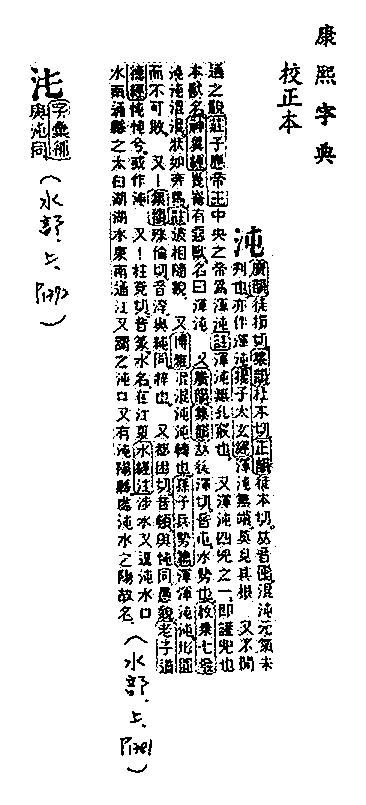 康熙字典
校正本
沌
廣韻徒損切集韻杜本切正韻徒本切𠀤音囤混沌元氣未
判也亦作渾沌揚子太玄經渾沌無端莫見其根 又不開
通之貌莊子應帝王中央之帝爲渾沌註渾沌無孔竅也 又渾沌四兇之一卽讙兜也
本獸名神異經崑崙有惡獸名曰渾沌 又廣韻集韻𠀤徒渾切音屯水勢也枚乗七發
沌沌渾渾狀如奔馬註波相隨貌 又博雅混混沌沌轉也孫子兵勢篇渾渾沌沌形圓
而不可敗 又集韻殊倫切音淳與純同粹也 又都困切音頓與忳同愚貌老子道
德經忳忳兮或作沌 又柱兗切音篆水名在江夏水經注沔水又逕沌水口
水南通縣之太白湖湖水東南通江又謂之沌口又有沌陽縣處沌水之陽故名
（水部．上．P1781）
㳈
字彙補
與沌同
（水部．上．P1792）